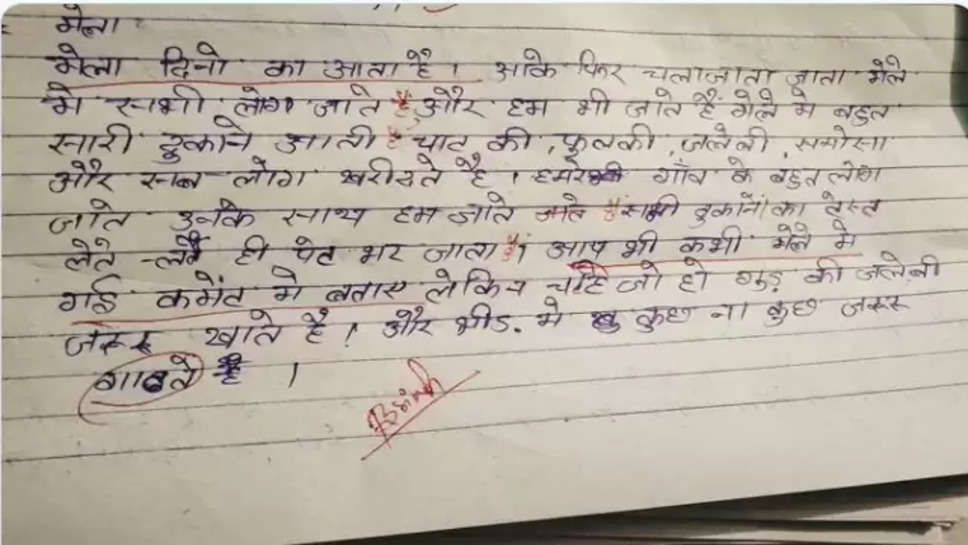 मेला
मेला दिनो का आता है। आके फिर चलाजाता जाता मेले
मे सभी लोग जाते है और हम भी जाते है मेले मे बहुत
सारी दुकाने आती है चाट की, फुलकी, जलेबी, समोसा
और सब लोग खरीदते है। हमारे गाँव के बहुत लोग
जाते उनके साथ हम जाते जाते है सभी दुकानों का टेस्ट
लेते-लेते ही पेट भर जाता है। आप भी कभी मेले मे
गई कमेंट मे बताए लेकिन चाहे जो हो गुड़ की जलेबी
जरूर खाते है। और भीड. मे कुछ ना कुछ जरूर
है।